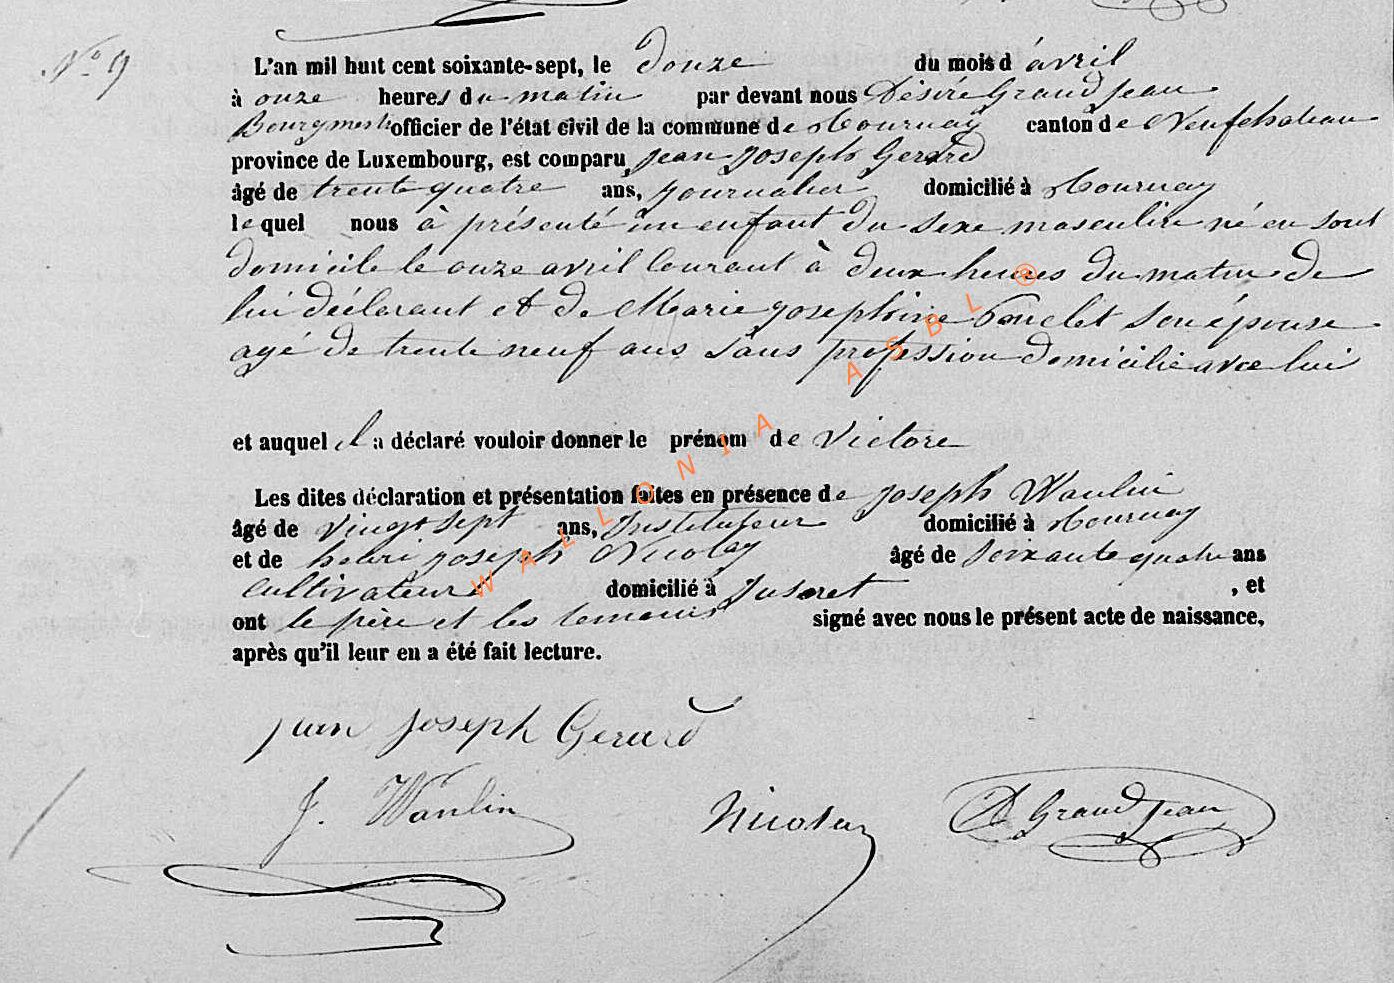 N° 9
L'an mil huit cent soixante-sept, le douze du mois d'avril
à onze heures du matin par devant nous Désiré Grandjean
Bourgmestre officier de l'état civil de la commune de Tournay canton de Neufchateau
province de Luxembourg, est comparu Jean Joseph Gerard
âgé de trente quatre ans, journalier domicilié à Tournay
lequel nous à présenté un enfant du sexe masculin né en sont
domicile le onze avril courant à deux heures du matin de
lui déclarant et de Marie Josephine Poncelet son épouse
agé de trente neuf ans sans profession domicilié avec lui
et auquel il a déclaré vouloir donner le prénom de Victore
Les dites déclaration et présentation faites en présence de Joseph Wanlin
âgé de vingt sept ans, Instituteur domicilié à Tournay
et de henri joseph Nicolay âgé de soixante quatre ans
cultivateur domicilié à Juseret , et
ont le père et les temoins signé avec nous le présent acte de naissance,
après qu'il leur en a été fait lecture.
jean joseph Gerard
J. Wanlin Nicolay D Grandjean
WALLONIA ASBL ®